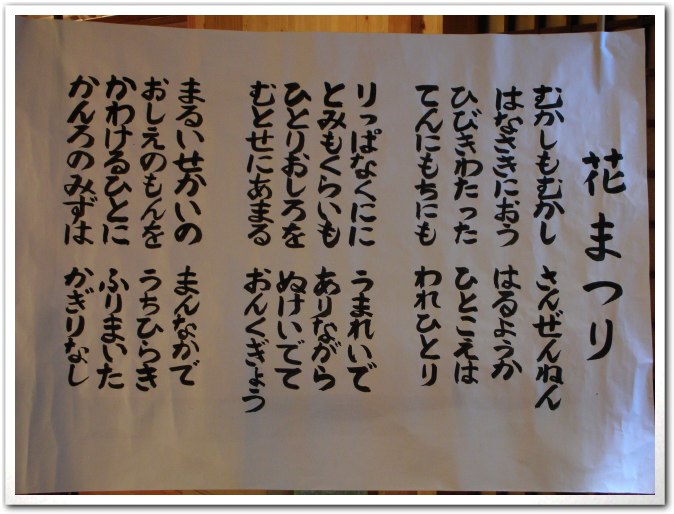 花まつり
むかしもむかし　さんぜんねん
はなさきにおう　はるようか
ひびきわたった　ひとこえは
てんにもちにも　われひとり
りっぱなくにに　うまれいで
とみもくらいも　ありながら
ひとりおしろを　ぬけいでて
むとせにあまる　おんくぎょう
まるいせかいの　まんなかで
おしえのもんを　うちひらき
かわけるひとに　ふりまいた
かんろのみずは　かぎりなし